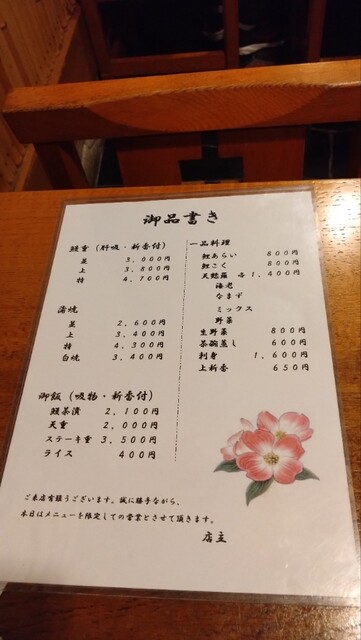 御品書き
鰻重（肝吸・新香付）
並 3,000円
上 3,800円
特 4,700円
蒲焼
並 2,600円
上 3,400円
特 4,300円
白焼 3,400円
御飯（吸物・新香付）
鰻茶漬 2,100円
天重 2,000円
ステーキ重 3,500円
ライス 400円
一品料理
鯉あらい 800円
鯉こく 800円
天麩羅 各1,400円
海老
なまず
ミックス
野菜
生野菜 800円
茶碗蒸し 600円
刺身 1,600円
上新香 650円
ご来店有難うございます。誠に勝手ながら、
本日はメニューを限定しての営業とさせて頂きます。
店主